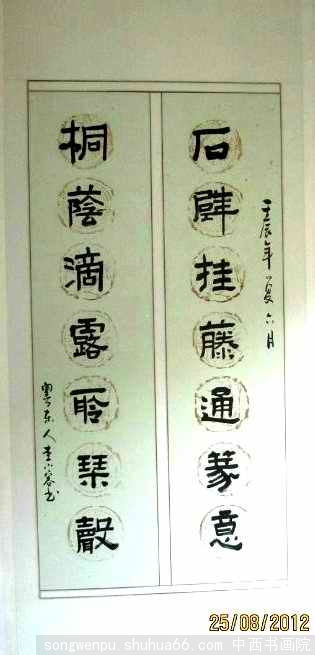 壬辰年夏六月
石壁挂藤通篆意
桐蔭滴露聆琹聲
粤东人李小书
25/08/2012
songwenpu.shuhua66.com 中西书画院